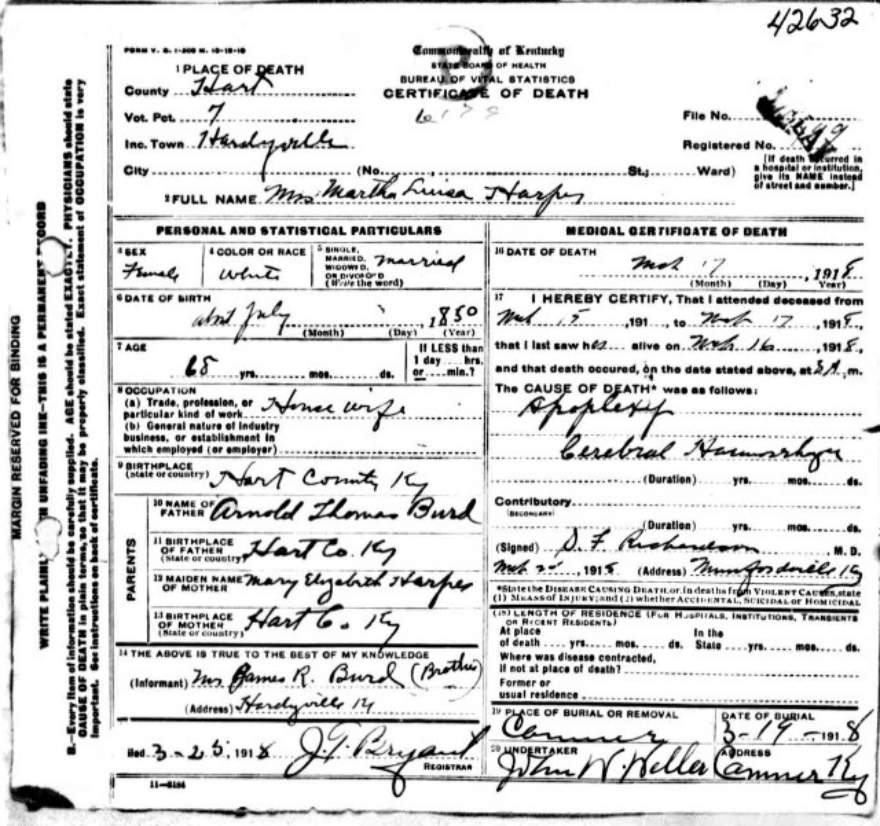 42632
FORM V. S. 1-200 M. 10-19-10
Commonwealth of Kentucky
STATE BOARD OF HEALTH
BUREAU OF VITAL STATISTICS
CERTIFICATE OF DEATH
1 PLACE OF DEATH
County Hart
Vot. Pct. 7
Inc. Town Hardyville
City (No. St.; Ward)
File No.
Registered No.
[If death occurred in
a hospital or institution,
give its NAME instead
of street and number.]
2 FULL NAME Mrs Martha Luisa Harper
PERSONAL AND STATISTICAL PARTICULARS
3 SEX
Female
4 COLOR OR RACE
White
5 SINGLE,
MARRIED,
WIDOWED,
OR DIVORCED
(Write the word)
married
6 DATE OF BIRTH
about July 1850
(Month) (Day) (Year)
7 AGE
68 yrs. mos. ds.
If LESS than
1 day .... hrs.
or .... min.?
8 OCCUPATION
(a) Trade, profession, or
particular kind of work House wife
(b) General nature of industry
business, or establishment in
which employed (or employer)
9 BIRTHPLACE
(state or country) Hart County Ky
PARENTS
10 NAME OF
FATHER Arnold Thomas Burd
11 BIRTHPLACE
OF FATHER
(State or country) Hart Co. Ky
12 MAIDEN NAME
OF MOTHER Mary Elizabeth Harper
13 BIRTHPLACE
OF MOTHER
(State or country) Hart Co Ky
14 THE ABOVE IS TRUE TO THE BEST OF MY KNOWLEDGE
(Informant) Mr James R. Burd (Brother)
(Address) Hardyville Ky
3-25, 1918 J.G. Bryant
REGISTRAR
11-5184
MEDICAL CERTIFICATE OF DEATH
16 DATE OF DEATH
Mch 17, 1918
(Month) (Day) Year)
17 I HEREBY CERTIFY, That I attended deceased from
Mch 15, 191 , to Mch 17, 1918,
that I last saw her alive on Mch 16, 1918,
and that death occured, on the date stated above, at m.
The CAUSE OF DEATH* was as follows:
Apoplexy
Cerebral Haemorrhage
(Duration) yrs. mos. ds.
Contributory
(SECONDARY)
(Duration) yrs. mos. ds.
(Signed) D. F. Richardson, M. D.
1918 (Address) Munfordville Ky
*State the DISEASE CAUSING DEATH, or, in deaths from VIOLENT CAUSES, state
(1) MEANS OF INJURY; and (2) whether ACCIDENTAL, SUICIDAL or HOMICIDAL
(18) LENGTH OF RESIDENCE (FOR HOSPITALS, INSTITUTIONS, TRANSIENTS
OR RECENT RESIDENTS)
At place of death yrs. mos. ds. In the State yrs. mos. ds.
Where was disease contracted,
if not at place of death?
Former or
usual residence
19 PLACE OF BURIAL OR REMOVAL
Canmer
DATE OF BURIAL
3-19-1918
20 UNDERTAKER
John W. Weller
ADDRESS
Canmer Ky
MARGIN RESERVED FOR BINDING
WRITE PLAINLY UNFADING INK—THIS IS A PERMANENT RECORD
B.—Every item of information should be carefully supplied. AGE should be stated EXACTLY. PHYSICIANS should state
CAUSE OF DEATH in plain terms, so that it may be properly classified. Exact statement of OCCUPATION is very
important. See instructions on back of certificate.